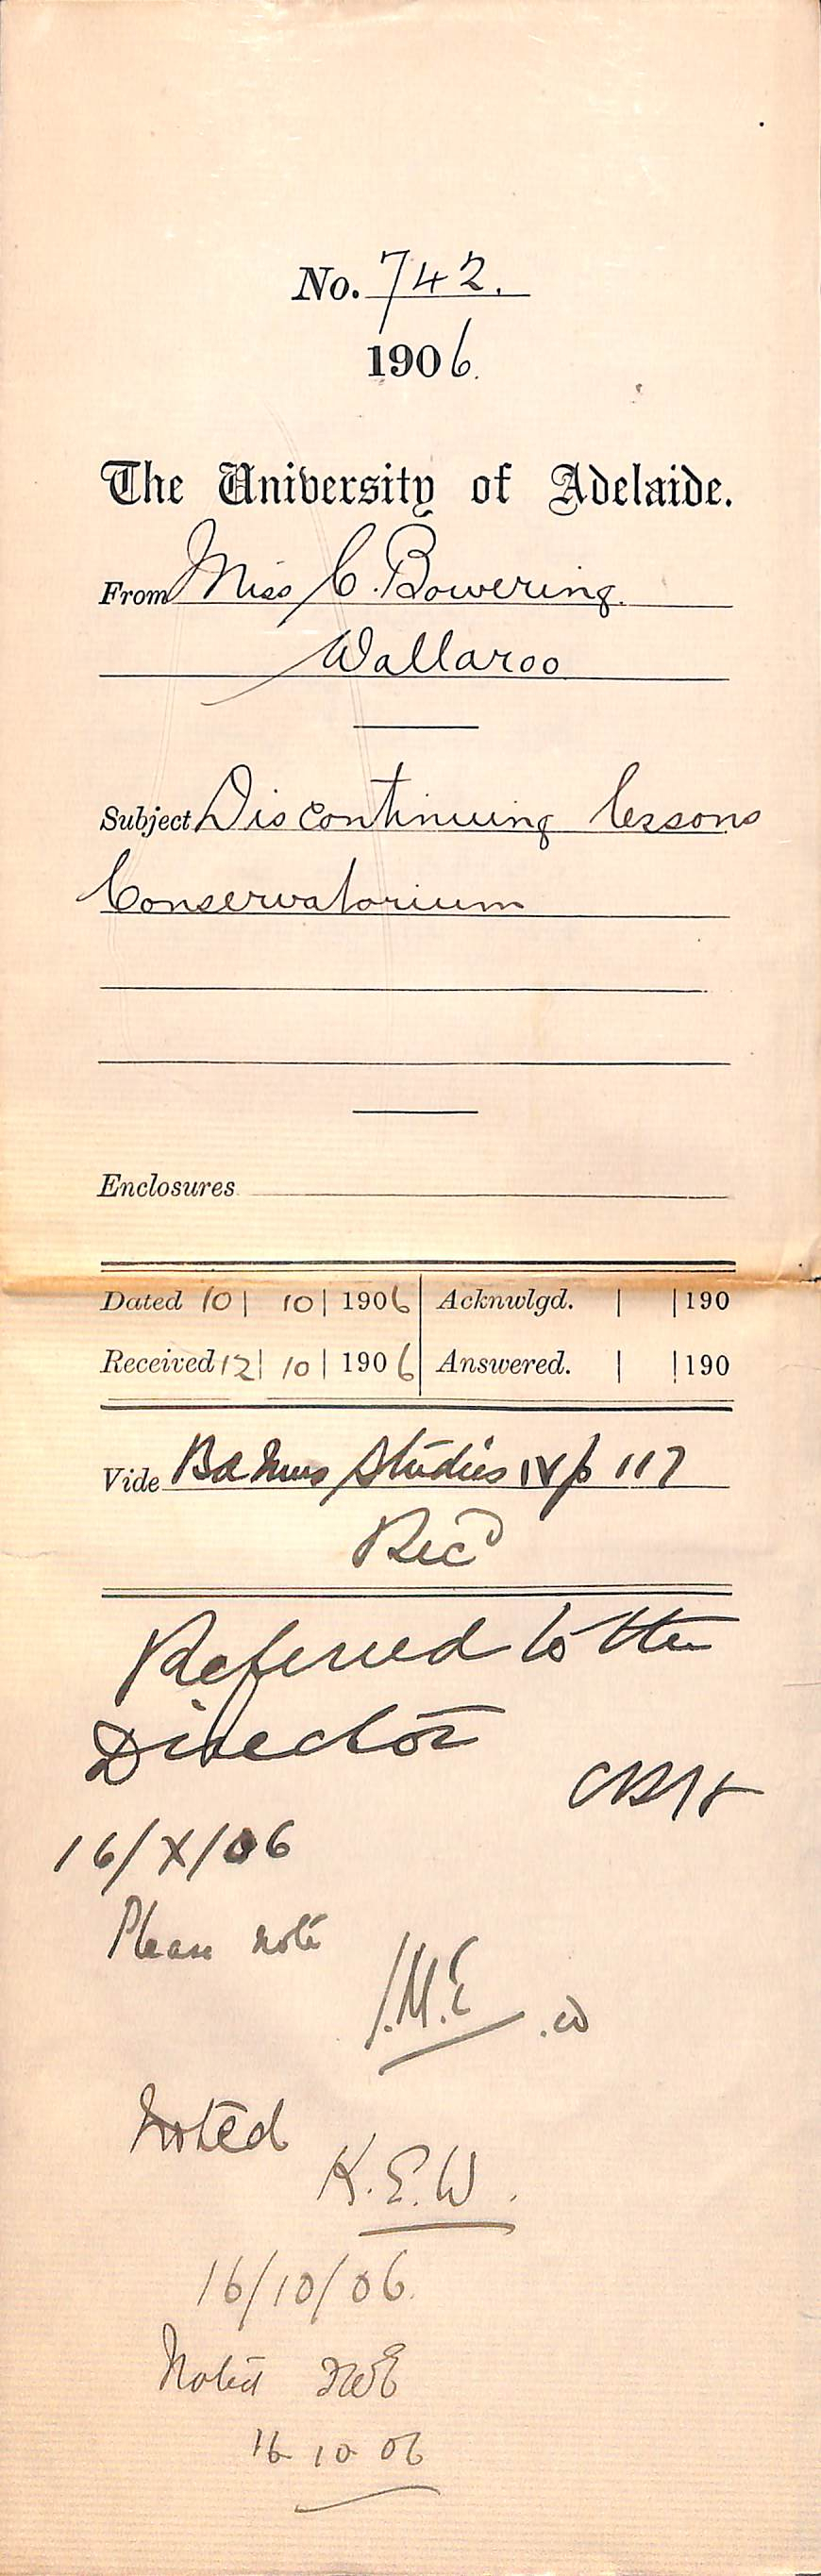 No. 742.
1906.
The University of Adelaide.
From Miss C. Bowering.
Wallaroo
Subject Discontinuing lessons
Conservatorium
Enclosures
Dated 10 | 10 | 1906 Acknwlgd. | | 190
Received 12 | 10 | 1906 Answered. | | 190
Vide Bd Mus Studies IV p 117
Recd
Referred to the
Director
CRH
16/X/06
Please note
J.M.E
Noted
K.E.W.
16/10/06.
Noted
16 10 06